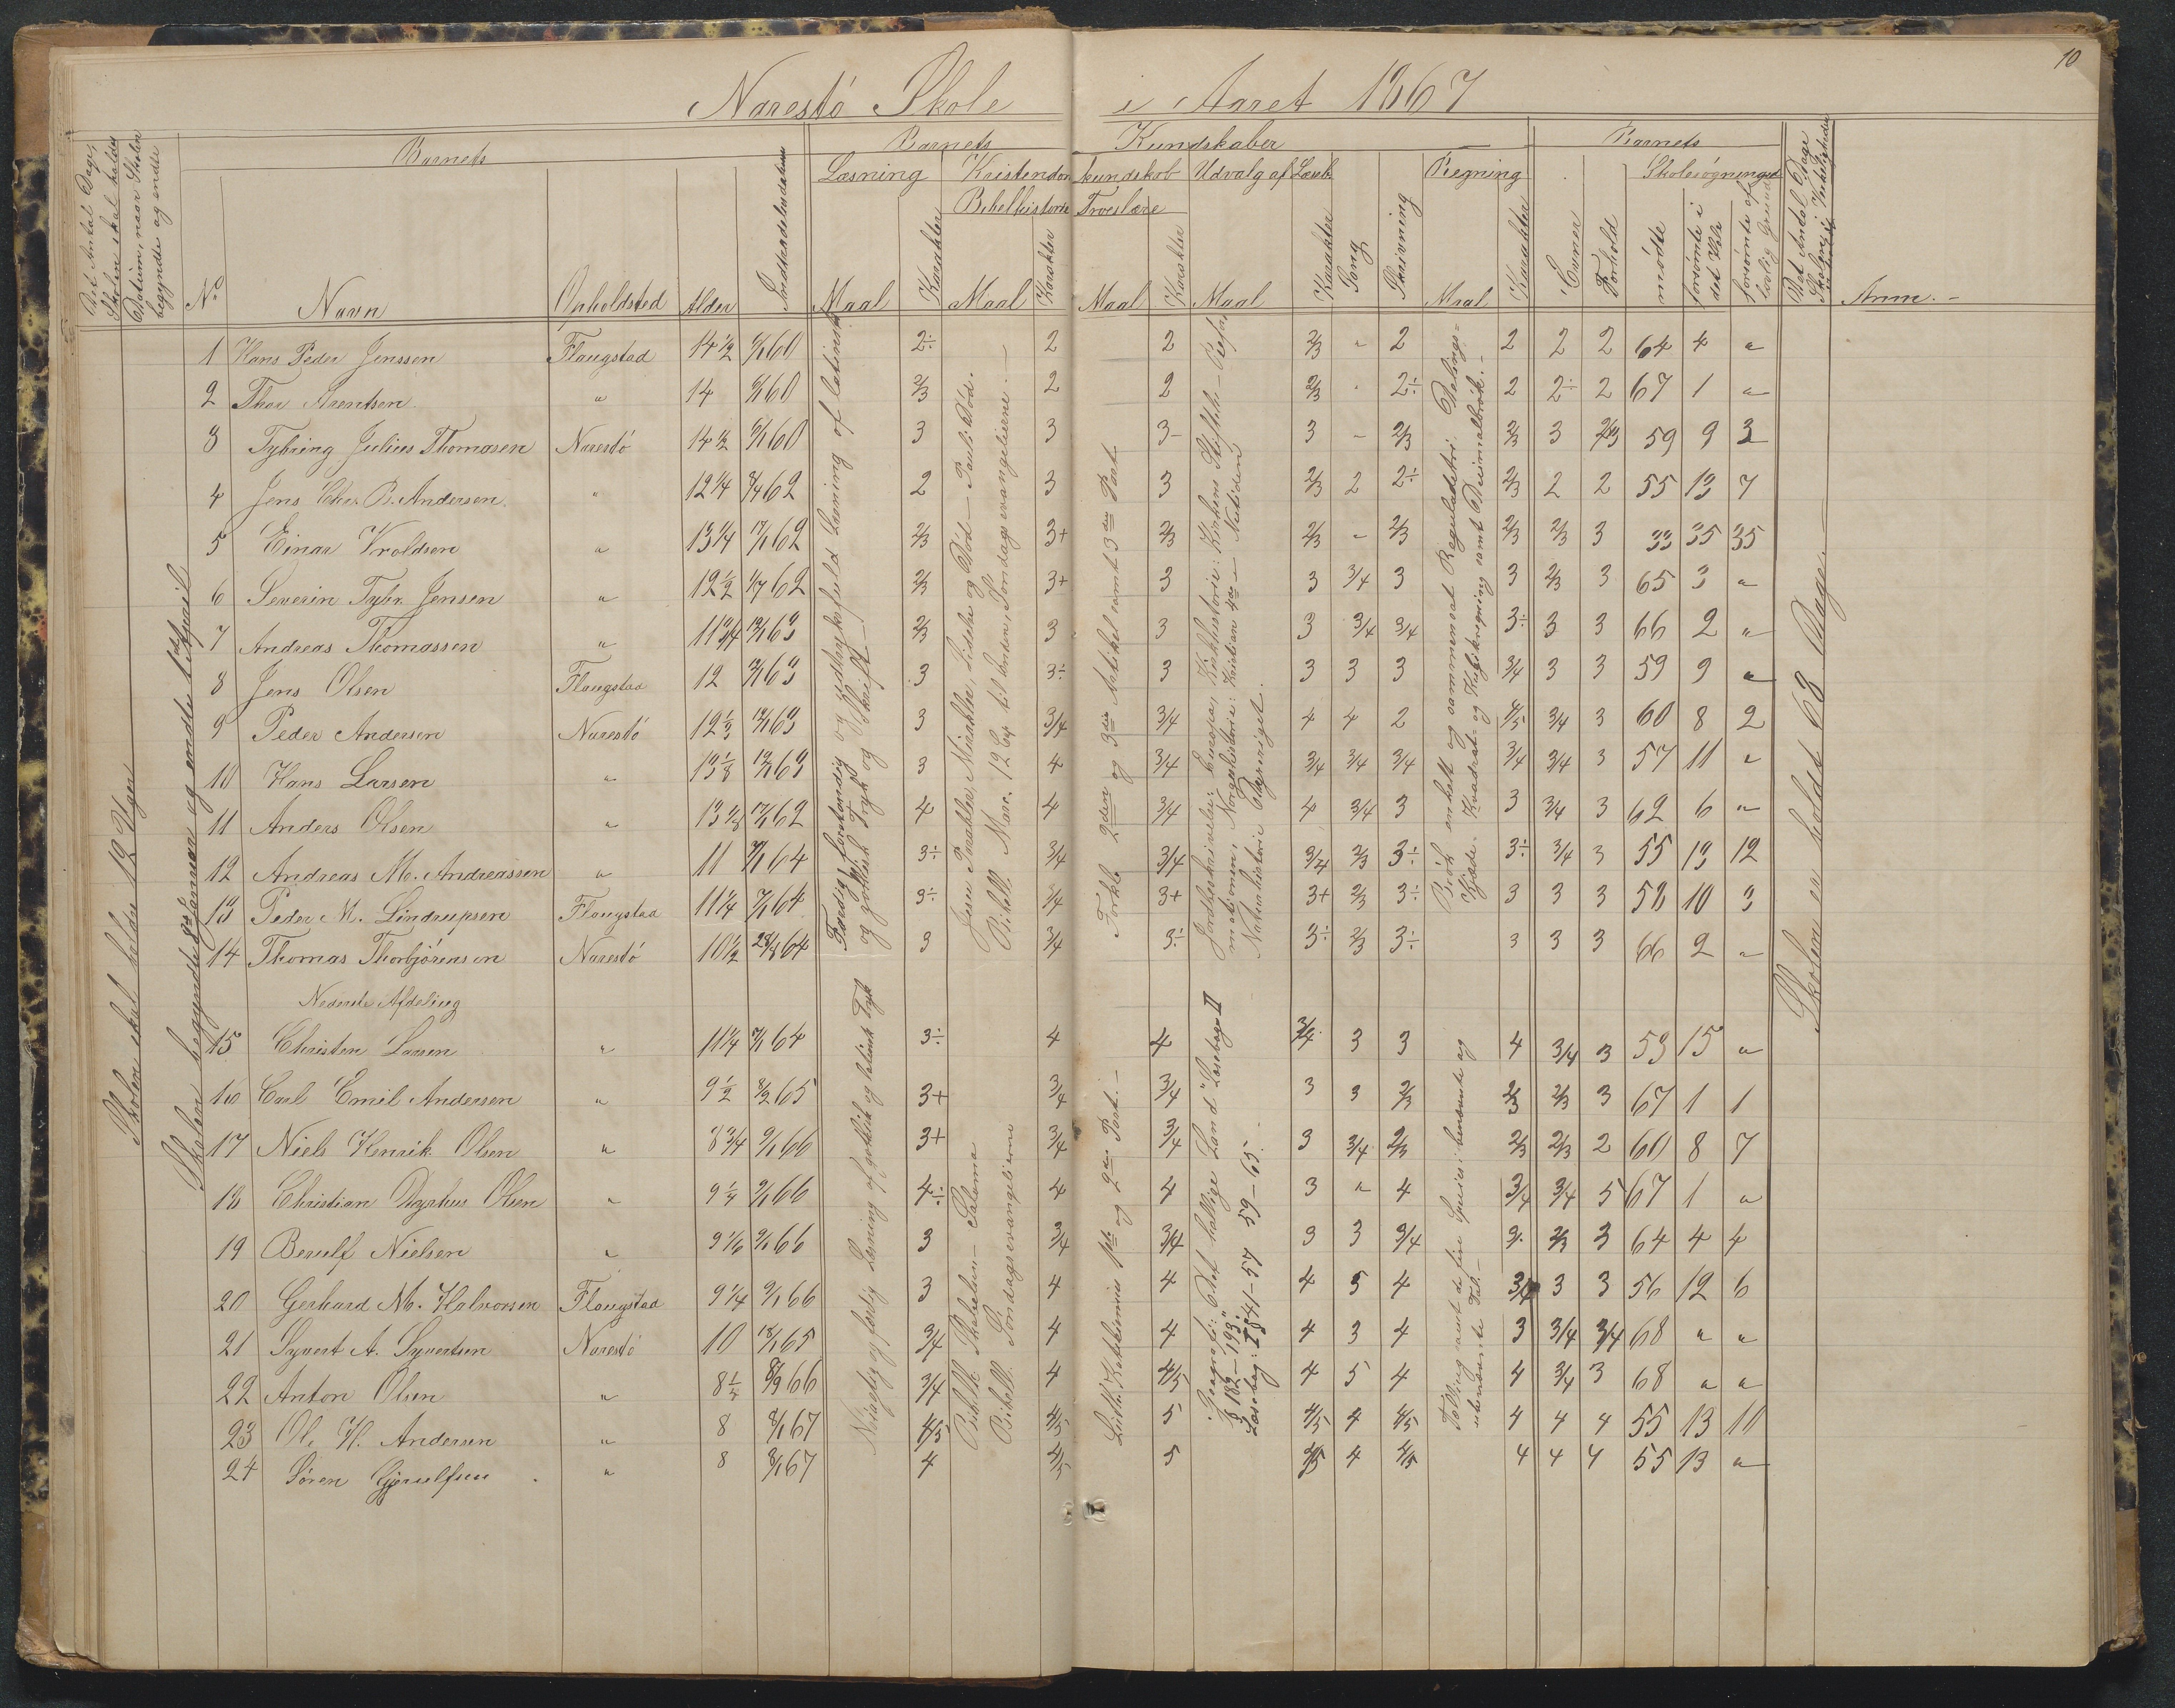 10
Narestö Skole i Aaret 1867
Det Antal Dage, Skolen skal holdes
Datum, naar Skolen begyndte og endte
Barnets
Barnets Kundskaber
Barnets
Det Antal Dage Skolen i Virkeligheden
Læsning Kristendomskundskab Udvalg af Læseb. Regning Skolesøgning
Bibelhistorie Troeslære
No Navn Opholdsted Alder Indtrædelsesdatum Maal Karakter Maal Karakter Maal Karakter Maal Karakter Sang Skrivning Maal Karakter Evner Forhold mødte forsømte i det Hele forsømte af lovlig Grund Anm.-
Skolen skal holdes 12 Uger
Skolen begyndte 8de Januar og endte 12te April
1 Hans Peder Jenssen Flaugstad 14½ 60 2÷ 2 2 2/3 " 2 2 2 2 64 4 "
2 Thor Arentsen " 14 60 2/3 2 2 2/3 2÷ 2 2÷ 2 67 1 "
3 Tybring Julius Thomasen Narestö 14½ 60 3 3 3- 3 - 2/3 2/3 3 2/3 59 9 3
4 Jens Chr. B. Andersen " 12¼ 62 2 3 3 2/3 2 2÷ 2/3 2 2 55 13 7
5 Einar Vroldsen " 13¼ 62 2/3 3+ 2/3 2/3 - 2/3 2/3 2/3 3 33 35 35
6 Severin Tybr. Jensen " 12½ 62 2/3 3+ 3 3 3/4 3 3 2/3 3 65 3 "
7 Andreas Thomassen " 11¾ 63 2/3 3 3 3 3/4 3/4 3÷ 3 3 66 2 "
8 Jens Olsen Flaugstad 12 63 3 3÷ 3 3 3 3 3/4 3 3 59 9 "
9 Peder Andersen Narestö 63 3 3/4 3/4 4 4 2 4/5 3/4 3 60 8 2
10 Hans Larsen " 63 3 4 3/4 3/4 3/4 3/4 3/4 3/4 3 57 11 "
11 Anders Olsen " 62 4 4 3/4 4 3/4 3 3 3/4 3 62 6 "
12 Andreas M. Andreassen " 11 64 3÷ 3/4 3/4 3/4 2/3 3÷ 3÷ 3/4 3 55 13 12
13 Peder M. Lindrupsen Flaugstad 11¼ 64 3÷ 3/4 3+ 3+ 2/3 3÷ 3 3 3 58 10 3
14 Thomas Thorbjörnsen Narestö 10½ 64 3 3/4 3÷ 3÷ 2/3 3÷ 3 3 3 66 2 "
Færdig, forstandig og udtryksfuld Læsning af latinsk og gothisk Tryk og Skrift.-
Jesu Parabler, Mirakler, Lidelse og Död - Pauli Död.
Bibell. Marc. 12 Cap til Enden, Söndagsevangelierne.-
Forkl. 2den og 3die Artikel samt 3die Part
Jordbeskrivelse: Europa, Kirkehistorie: Kirkens Stiftelse - Reformationen, Norgeshistorie: Kristian 4de - Nutiden
Naturhistorie Dyreriget.
Brök enkelt og sammensat Reguladetri. Delings-
Kjæde- Kvadrat- og Kubikregning samt Decimalbrök.-
Skolen er holdt 68 Dage.-
Nederste Afdeling
15 Christen Larsen " 11¼ 64 3÷ 4 4 3/4 3 3 4 3/4 3 53 15 "
16 Carl Emil Andersen " 9½ 65 3+ 3/4 3/4 3 3 2/3 2/3 2/3 3 67 1 1
17 Niels Henrik Olsen " 8¾ 66 3+ 3/4 3/4 3 3/4 2/3 2/3 2/3 2 60 8 7
18 Christian Olsen " 66 4÷ 4 4 3 " 4 3/4 3/4 5 67 1 "
19 Berulf Nielsen " 66 3 3/4 3/4 3 3 3/4 3. 2/3 3 64 4 4
20 Gerhard M. Halvorsen Flaugstad 9¼ 66 3 4 4 4 5 4 3/4 3 3 56 12 6
21 Syvert A. Syvertsen Narestö 10 65 3/4 4 4 4 3 4 3 3/4 3/4 68 " "
22 Anton Olsen " 66 3/4 4 4/5 4 5 4 4 3/4 3 68 " "
23 Ole H. Andersen " 8 67 4/5 4/5 5 4/5 4 4/5 4 4 4 55 13 10
24 Sören Gjerulfsen " 8 67 4 4/5 5 4/5 4 4/5 4 4 4 55 13 "
Nöiagtig og færdig Læsning af gothisk og latinsk Tryk
Bibelh. Skabelsen - Salomo
Bibell. Söndagsevangelierne
Luth. Katekismus 1ste og 2den Part.-
Geografi: "Det hellige Land" Læsebogs II
§ 182-193.
Læsebog: I § 41-57 59-65.-
Tælling samt de fire Species: benævnte og ubenævnte Tal.-